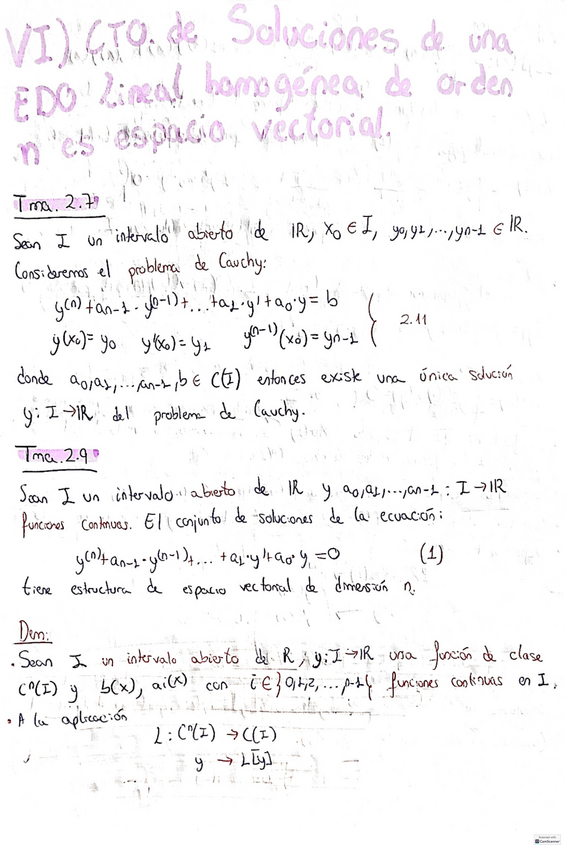 VI) CTO. de Soluciones de una
EDO lineal homogénea de orden
n es espacio vectorial.
Tma. 2.7
Sean I un intervalo abierto de IR, x₀ ∈ I, y₀, y₁, ..., yn-1 ∈ IR.
Consideremos el problema de Cauchy:
y⁽ⁿ⁾ + an-1 · y⁽ⁿ⁻¹⁾ + ... + a₁ · y' + a₀ · y = b
y(x₀) = y₀ y'(x₀) = y₁ y⁽ⁿ⁻¹⁾(x₀) = yn-1 } 2.11
donde a₀, a₁, ..., an-1, b ∈ C(I) entonces existe una única solución
y: I → IR del problema de Cauchy.
Tma. 2.9
Sean I un intervalo abierto de IR y a₀, a₁, ..., an-1 : I → IR
funciones continuas. El conjunto de soluciones de la ecuación:
y⁽ⁿ⁾ + an-1 · y⁽ⁿ⁻¹⁾ + ... + a₁ · y' + a₀ · y = 0 (1)
tiene estructura de espacio vectorial de dimensión n.
Dem:
· Sean I un intervalo abierto de R, y: I → IR una función de clase
Cⁿ(I) y b(x), ai(x) con i ∈ }0,1,2,...,n-1{ funciones continuas en I.
· A la aplicación
L : Cⁿ(I) → C(I)
y → L[y]
Scanned with
CamScanner